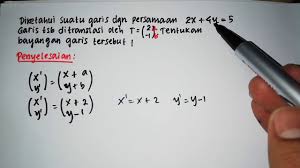 Diketahui suatu garis dgn persamaan 2x + 4y = 5
Garis tsb ditranslasi oleh T = (2 -1) Tentukan
bayangan garis tersebut !
Penyelesaian :
(x' y') = (x + a y + b)
(x' y') = (x + 2 y - 1) x' = x + 2 y' = y - 1